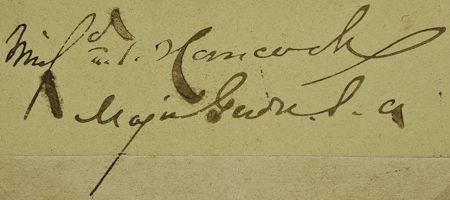 Winfd S. Hancock
Major Genl. U.S.A